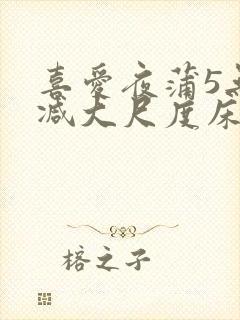 喜爱夜蒲5无
减大尺度床
榕之子